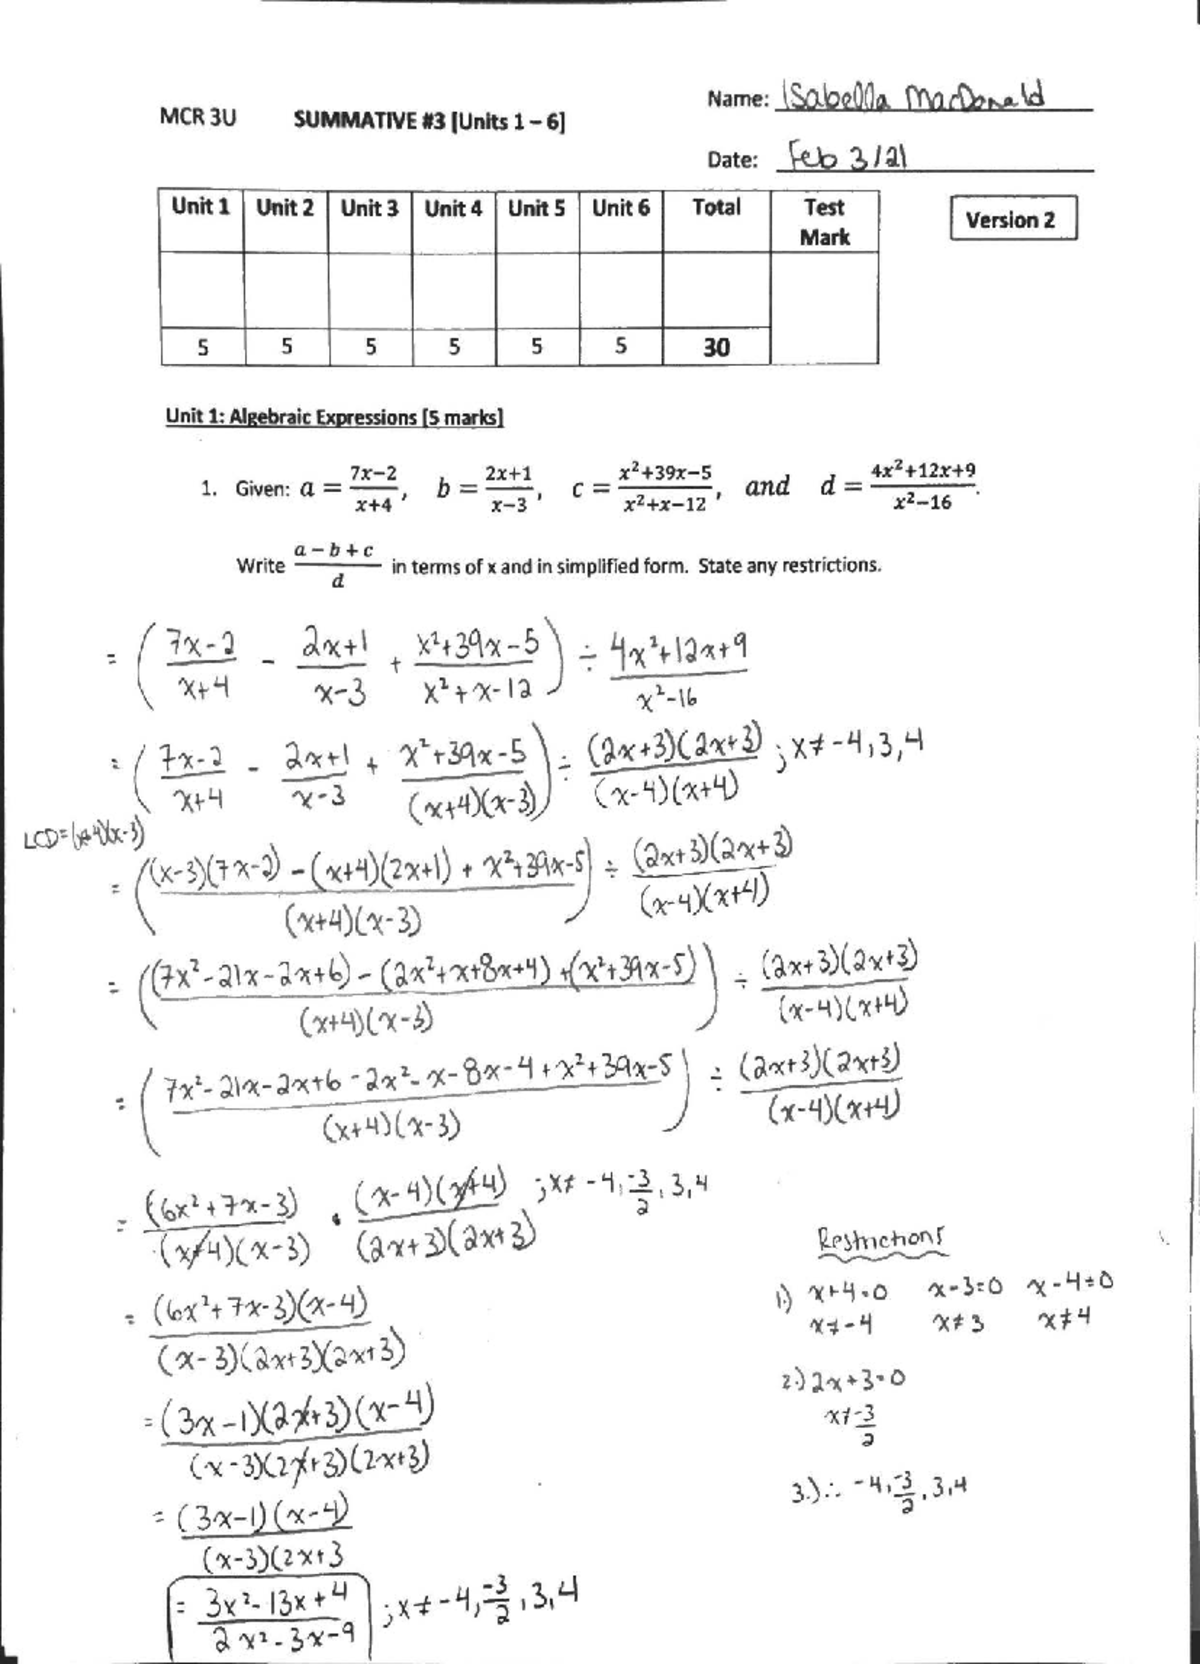 Name: Isabella MacDonald
MCR 3U SUMMATIVE #3 [Units 1 – 6]
Date: Feb 3/21
Unit 1 Unit 2 Unit 3 Unit 4 Unit 5 Unit 6 Total Test Mark
Version 2
5 5 5 5 5 5 30
Unit 1: Algebraic Expressions [5 marks]
1. Given: a = (7x−2)/(x+4), b = (2x+1)/(x−3), c = (x²+39x−5)/(x²+x−12), and d = (4x²+12x+9)/(x²−16).
Write (a − b + c)/d in terms of x and in simplified form. State any restrictions.
= ( (7x-2)/(x+4) - (2x+1)/(x-3) + (x²+39x-5)/(x²+x-12) ) ÷ (4x²+12x+9)/(x²-16)
= ( (7x-2)/(x+4) - (2x+1)/(x-3) + (x²+39x-5)/((x+4)(x-3)) ) ÷ ((2x+3)(2x+3))/((x-4)(x+4)) ; x≠-4,3,4
LCD=(x+4)(x-3)
= ( ((x-3)(7x-2) - (x+4)(2x+1) + x²+39x-5)/((x+4)(x-3)) ) ÷ ((2x+3)(2x+3))/((x-4)(x+4))
= ( ((7x²-21x-2x+6) - (2x²+x+8x+4) + (x²+39x-5))/((x+4)(x-3)) ) ÷ ((2x+3)(2x+3))/((x-4)(x+4))
= ( (7x²-21x-2x+6-2x²-x-8x-4+x²+39x-5)/((x+4)(x-3)) ) ÷ ((2x+3)(2x+3))/((x-4)(x+4))
= (6x²+7x-3)/((x+4)(x-3)) · ((x-4)(x+4))/((2x+3)(2x+3)) ; x≠ -4, -3/2, 3, 4
= ((6x²+7x-3)(x-4))/((x-3)(2x+3)(2x+3))
= ((3x-1)(2x+3)(x-4))/((x-3)(2x+3)(2x+3))
= ((3x-1)(x-4))/((x-3)(2x+3
= (3x²-13x+4)/(2x²-3x-9) ; x≠ -4, -3/2, 3, 4
Restrictions
1.) x+4=0 x-3=0 x-4=0
x≠-4 x≠3 x≠4
2.) 2x+3=0
x≠-3/2
3.) ∴ -4, -3/2, 3, 4